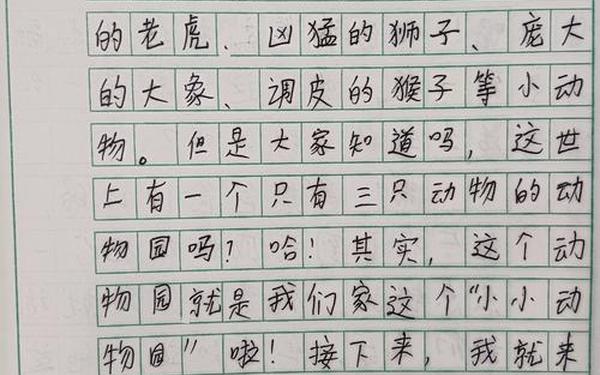 的老虎、凶猛的狮子、庞大
的大象、调皮的猴子等小动
物。但是大家知道吗，这世
上有一个只有三只动物的动
物园吗？哈！其实，这个动
物园就是我们家这个“小小动
物园”啦！接下来，我就来